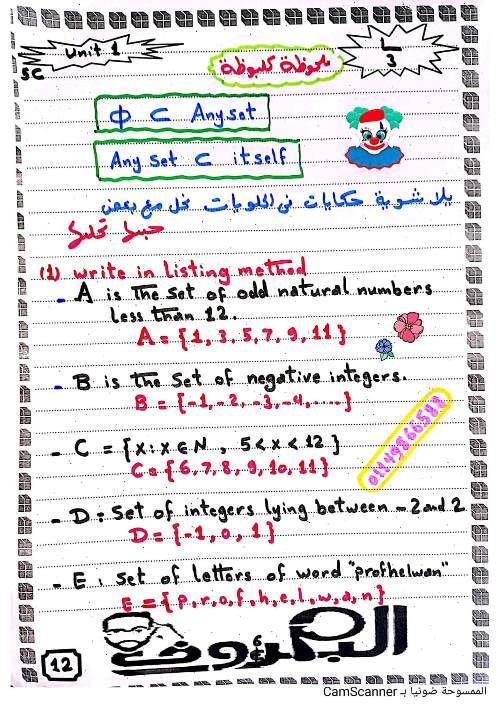 Unit 1
SC
ملحوظة كلبوظة
L
3
Φ ⊂ Any set
Any set ⊂ itself
يلا شوية حكايات في الحلويات نحل مع بعض
(1) write in listing method
- A is the set of odd natural numbers
less than 12.
A = {1, 3, 5, 7, 9, 11}
- B is the set of negative integers.
B = {-1, -2, -3, -4, .....}
- C = {x : x ∈ N , 5 < x < 12}
C = {6, 7, 8, 9, 10, 11}
- D : set of integers lying between -2 and 2
D = {-1, 0, 1}
- E : set of letters of word "profhelwan"
E = {p, r, o, f, h, e, l, w, a, n}
12
الممسوحة ضوئيا بـ CamScanner